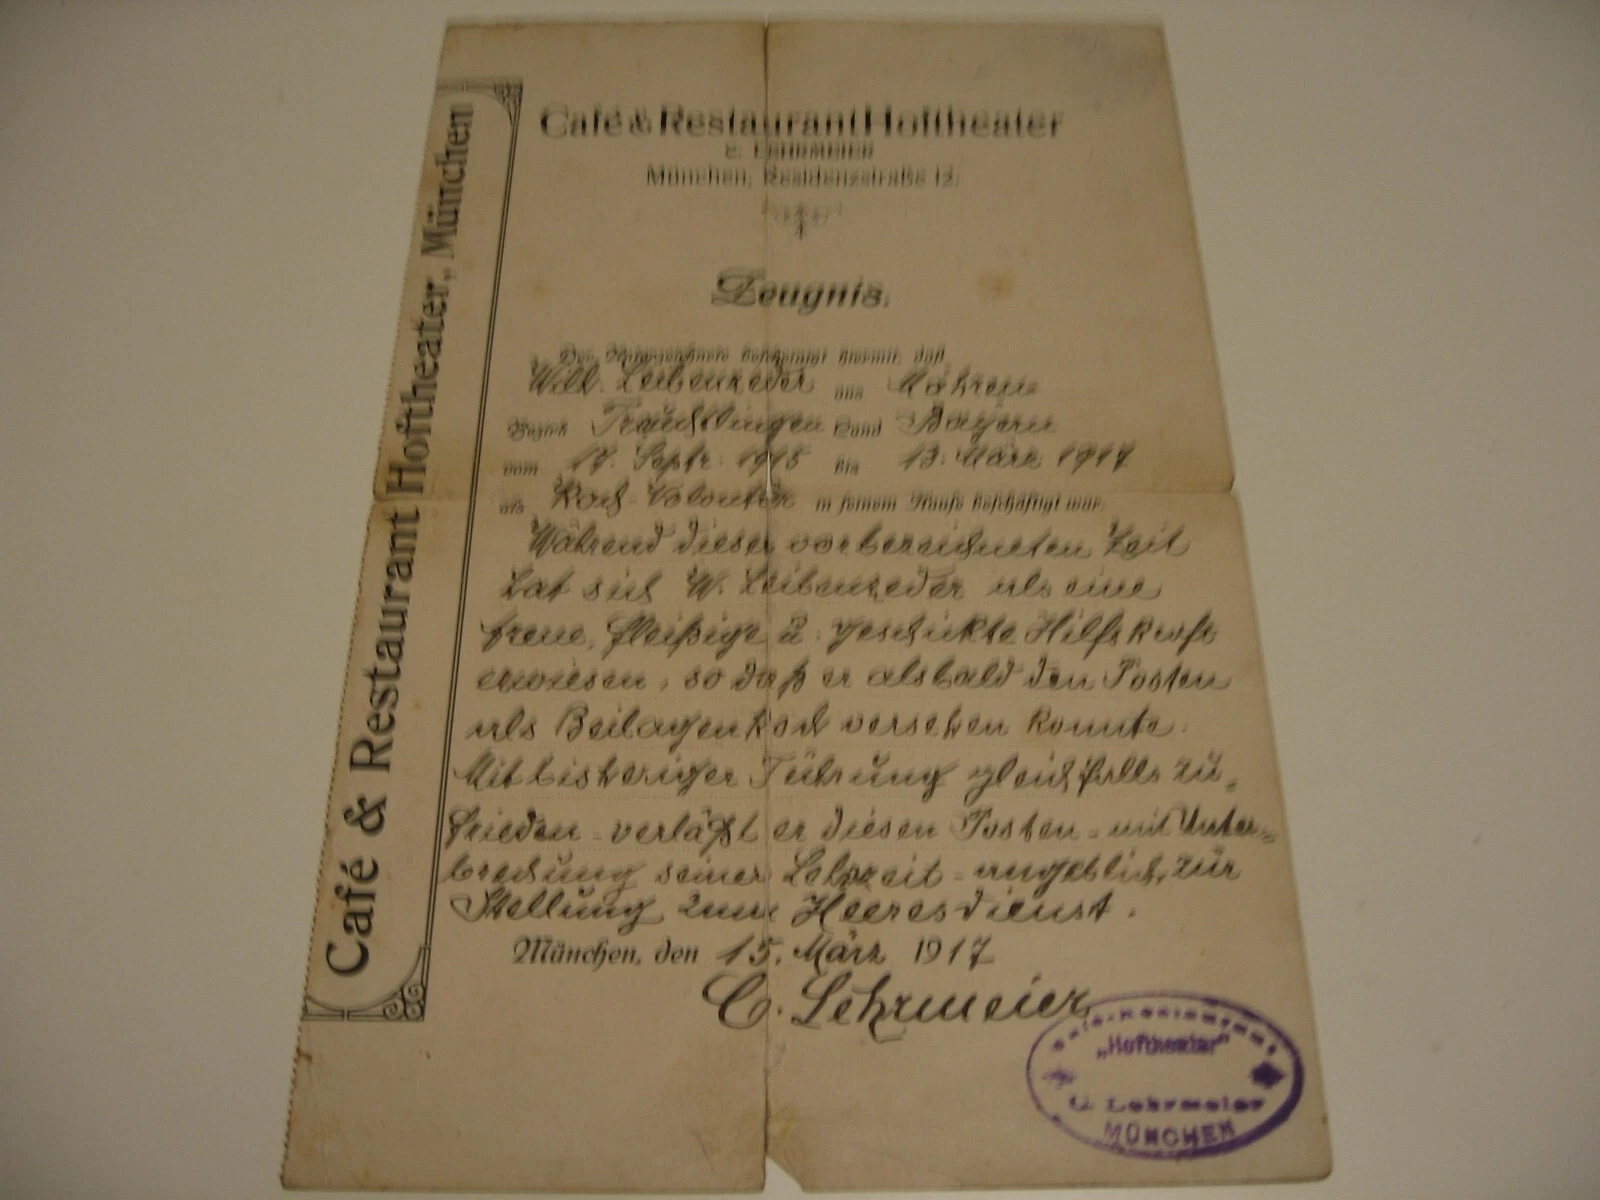 Café & Restaurant Hoftheater, München
Café & Restaurant Hoftheater
C. LEHRMEIER
München, Residenzstraße 12.
Zeugnis.
Der Unterzeichnete bescheinigt hiermit, daß
Wilh. Leibenzeder aus Möhren
Bezirk Treuchtlingen Land Bayern
vom 17. Septr. 1915 bis 13. März 1917
als Koch-Volontär in seinem Hause beschäftigt war.
Während dieser vorbezeichneten Zeit
hat sich W. Leibenzeder als eine
treue, fleißige u. geschickte Hilfskraft
erwiesen, so daß er alsbald den Posten
als Beilagenkoch versehen konnte.
Mit bisheriger Führung gleichfalls zu-
frieden - verläßt er diesen Posten - mit Unter-
brechung seiner Lehrzeit - angeblich zur
Stellung zum Heeresdienst.
München, den 15. März 1917
C. Lehrmeier
Café-Restaurant
„Hoftheater"
C. Lehrmeier
MÜNCHEN